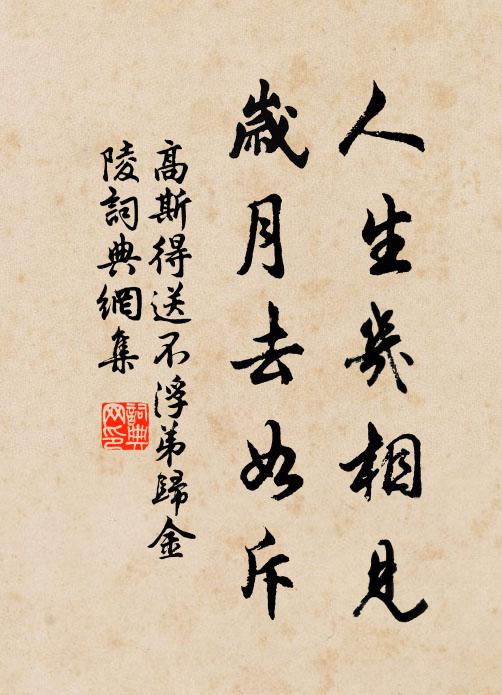 人生幾相見
歲月去如斥
高斯得送不浮弟歸金
陵詞典網集
詞典網印